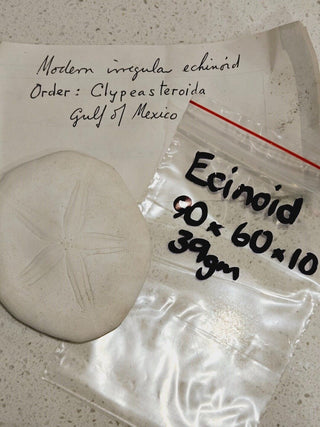 Modern irregula echinoid
Order: Clypeasteroida
Gulf of Mexico
Ecinoid
90 x 60 x 10
39gm